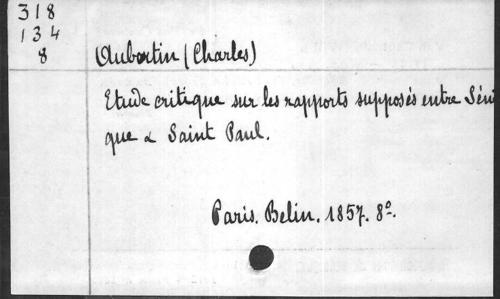 318
134
8
Aubertin (Charles)
Etude critique sur les rapports supposés entre Séni
que & Saint Paul.
Paris. Belin. 1857. 8º.